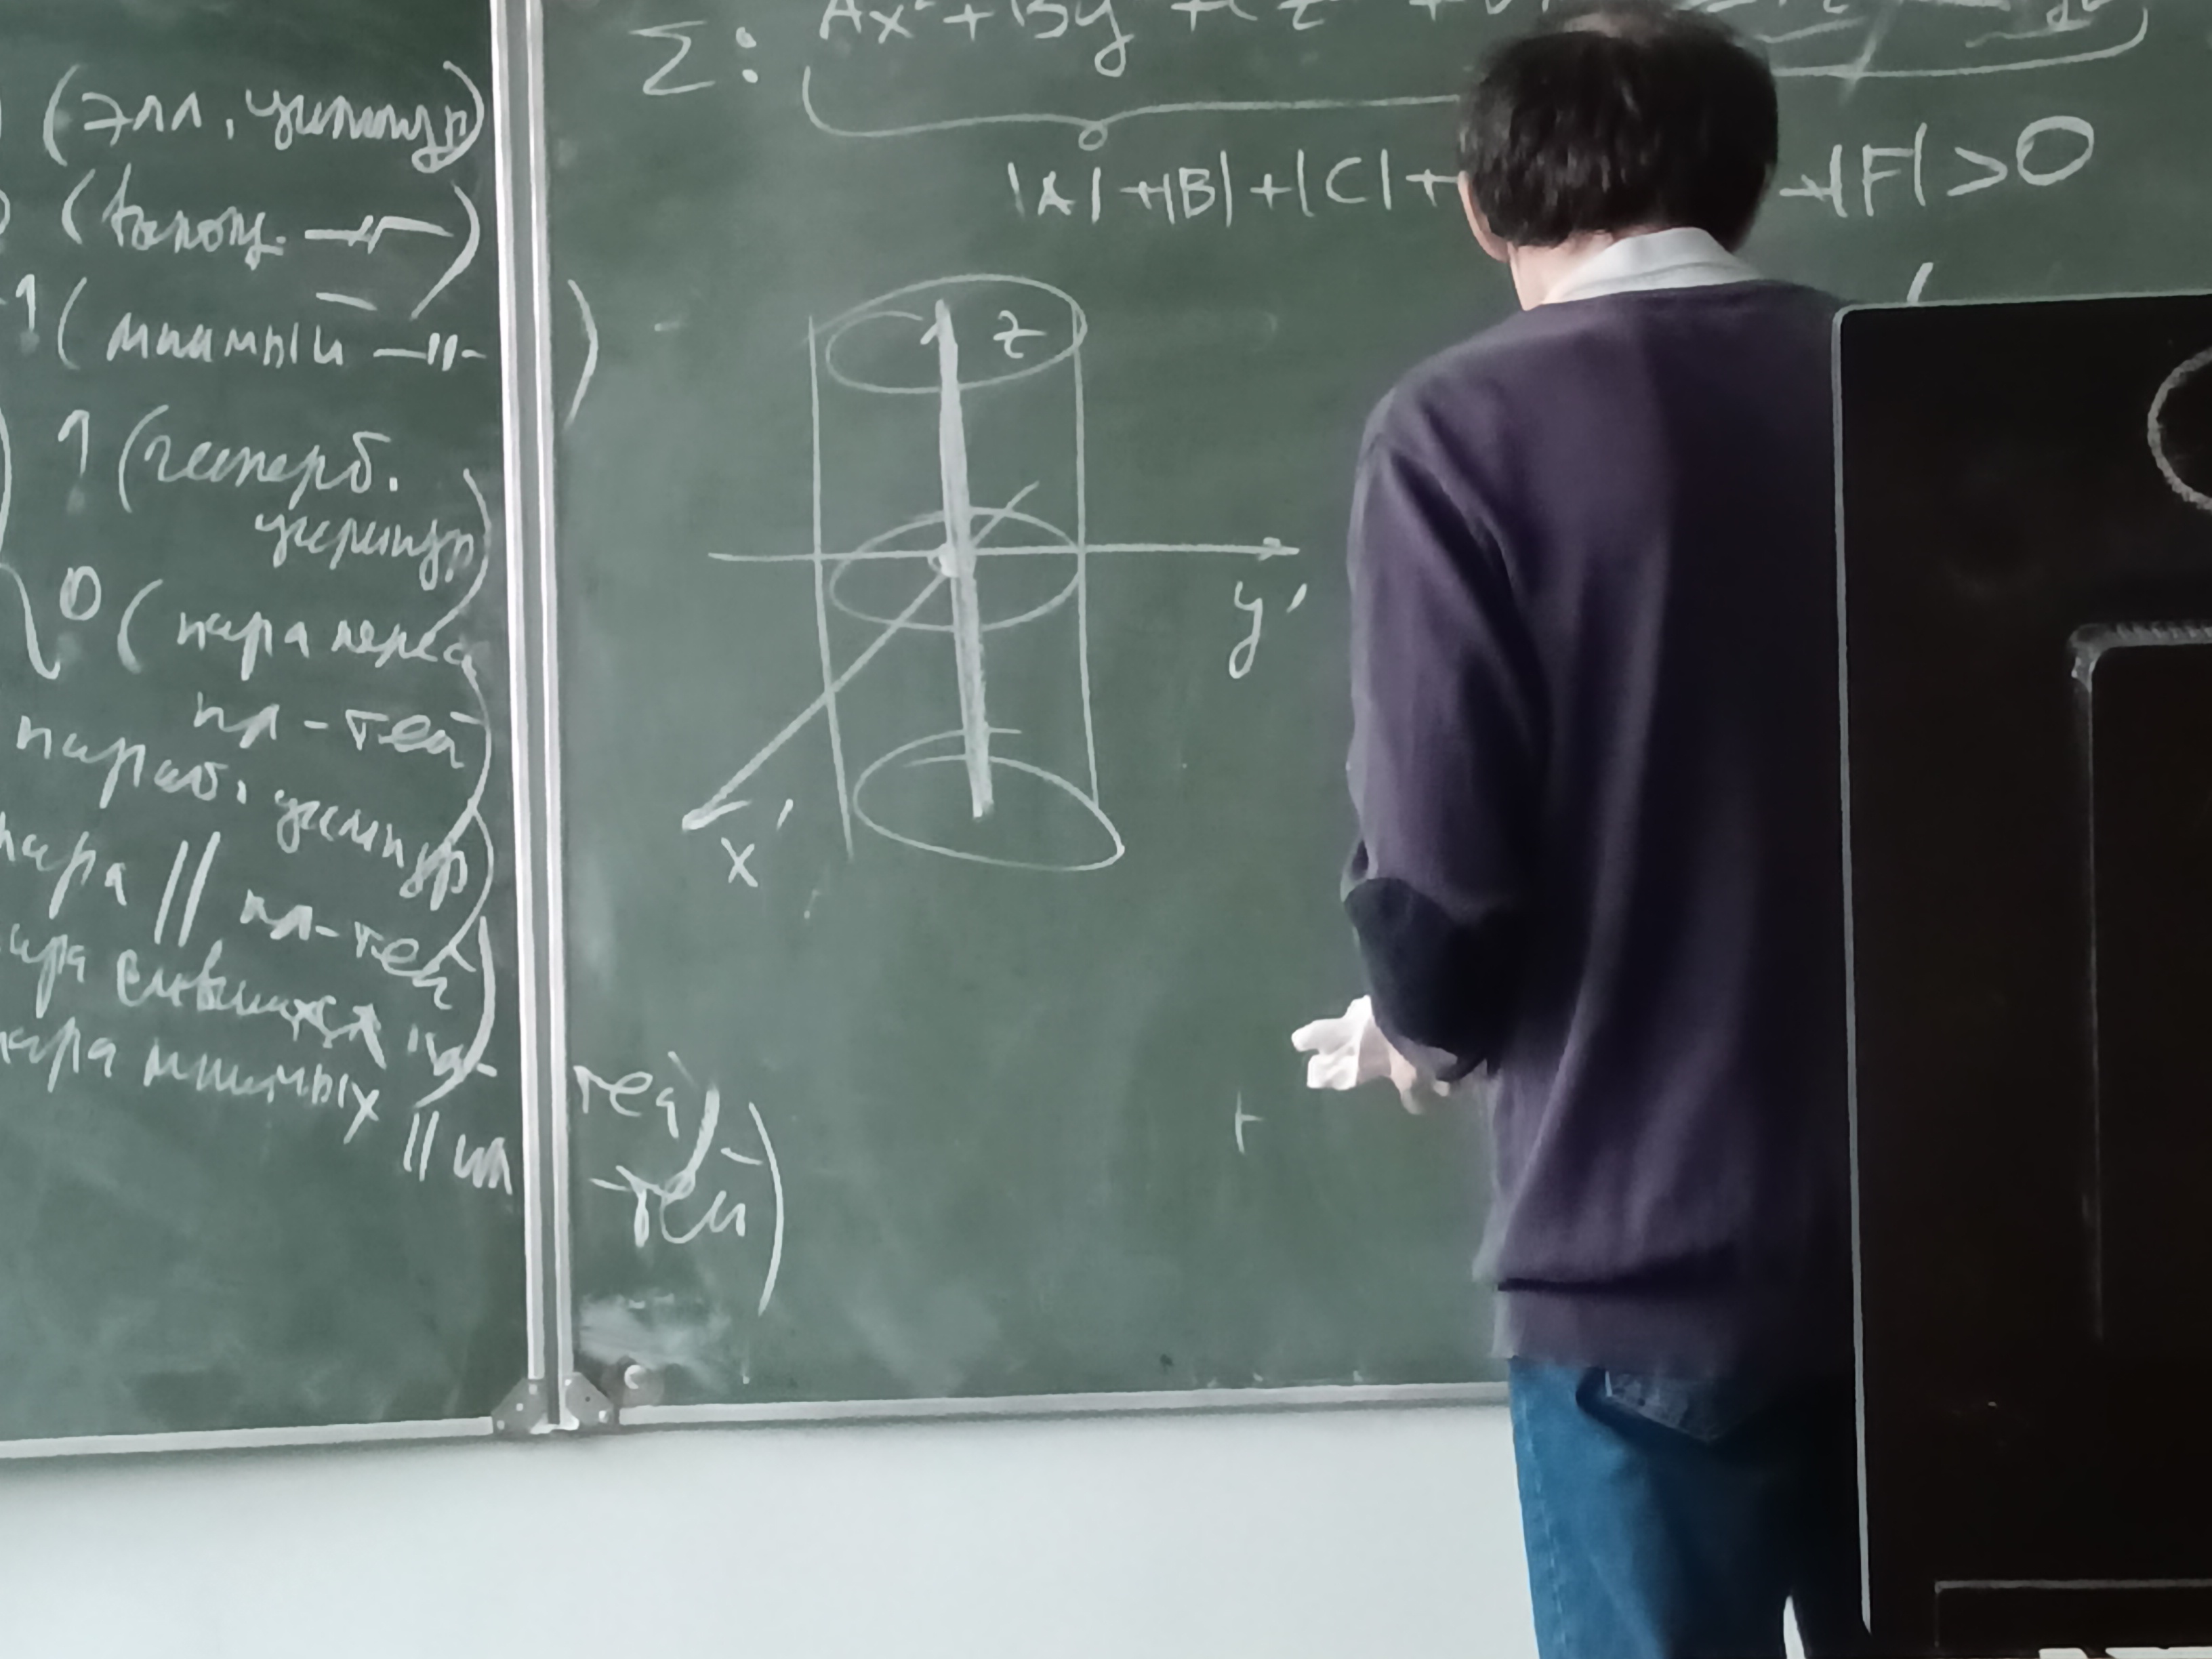 (элл. цилиндр)
(вырожд. —"—)
1 (мнимый —"— )
1 (гиперб.
цилиндр)
0 (пара перес
пл-тей
параб. цилиндр)
пара // пл-тей)
пара слившихся пл-тей
пара мнимых // пл-тей)
Σ: Ax² + By + Cz
|A| + |B| + |C| + + |F| > 0
z
y'
x'